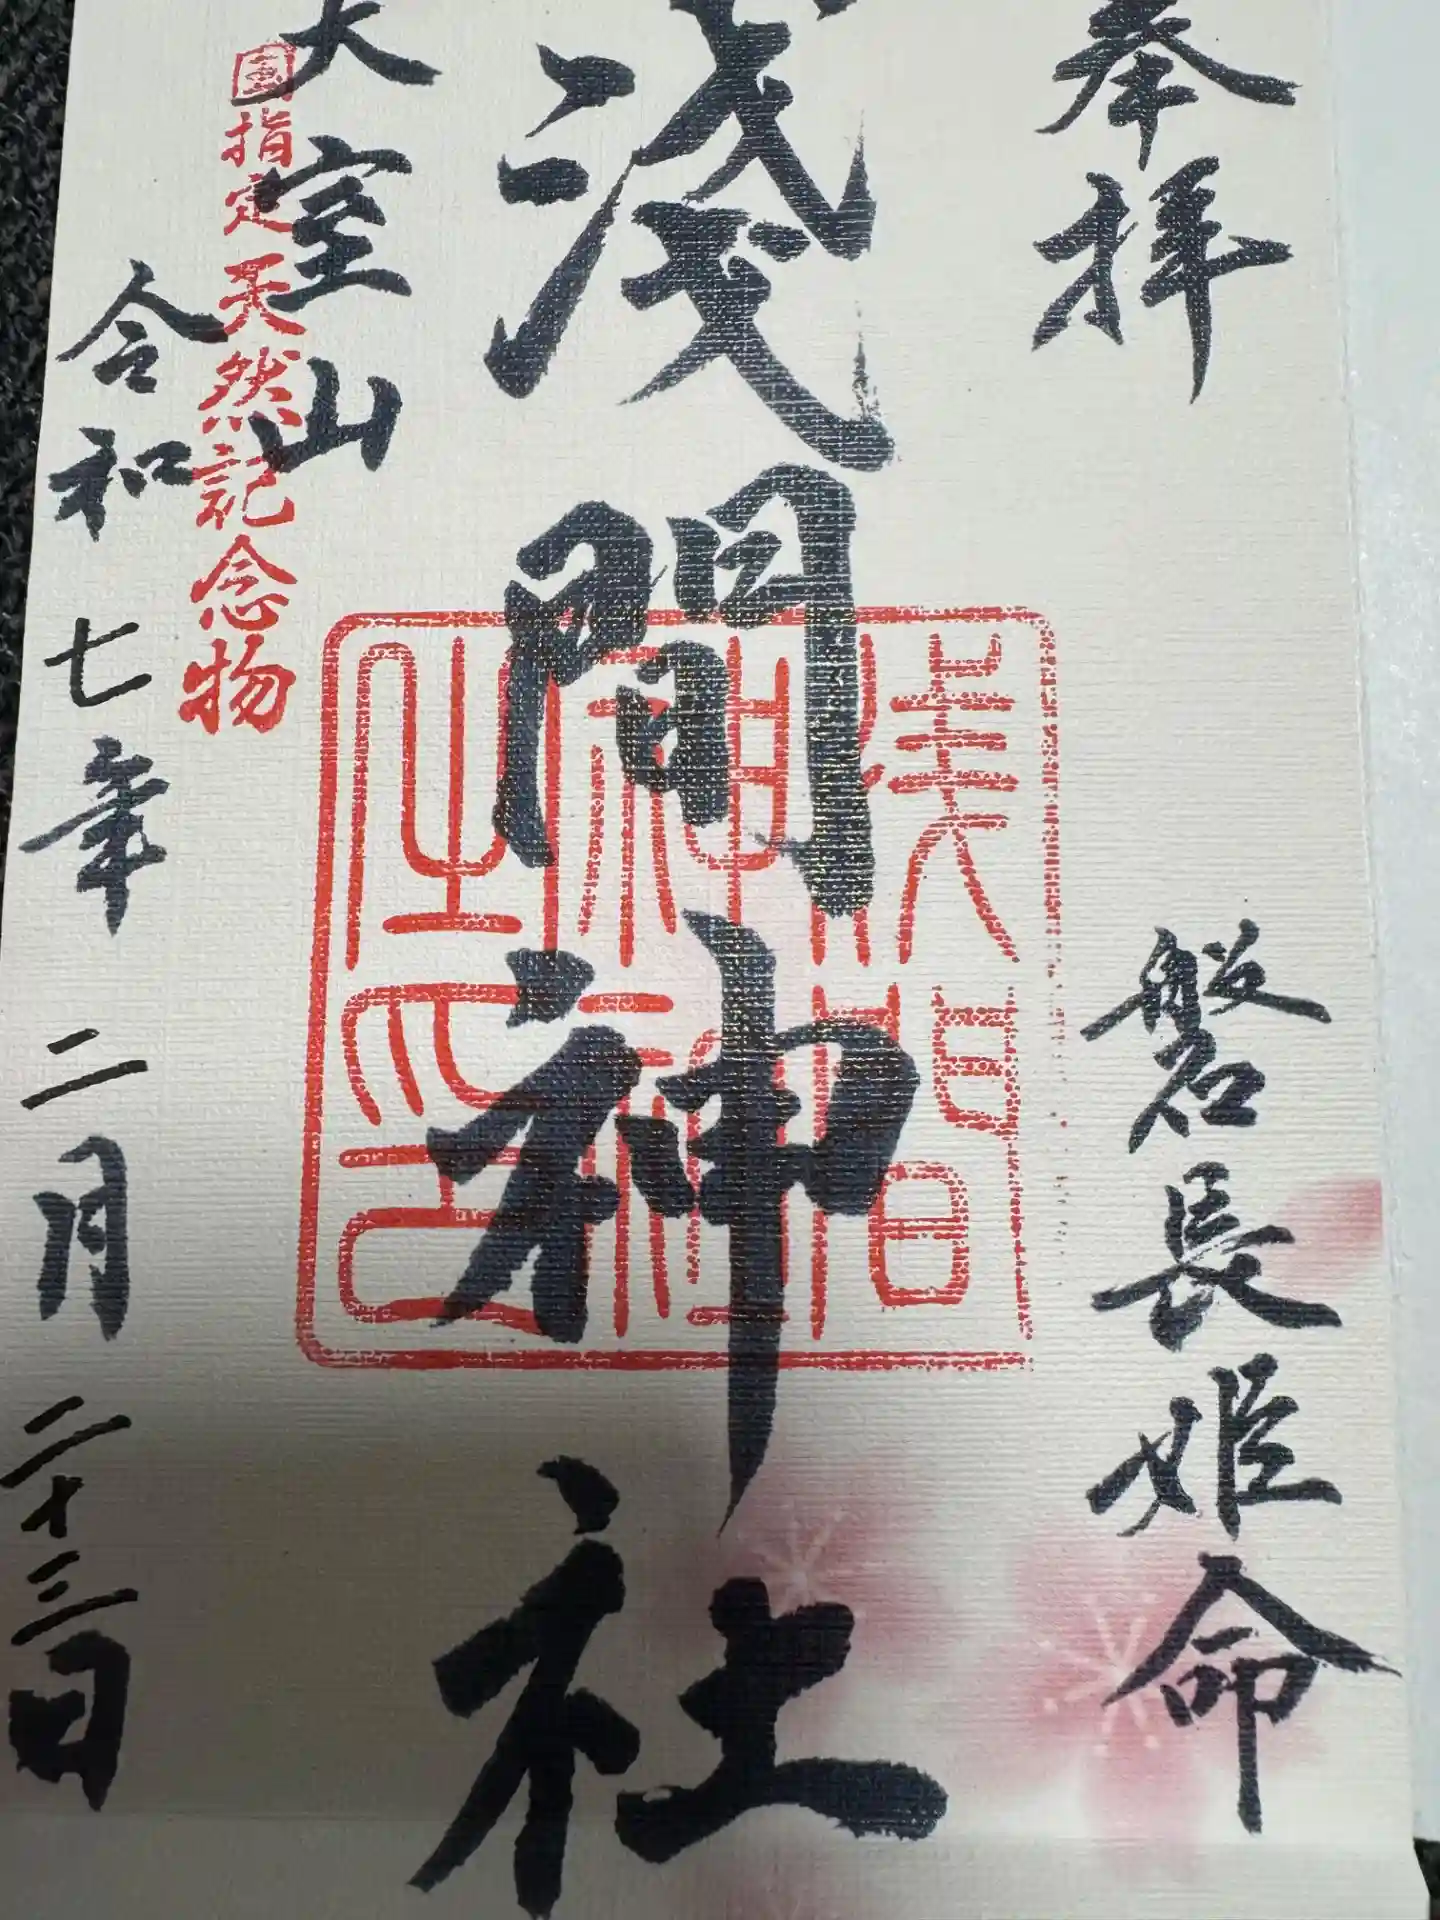 奉拝
磐長姫命
浅間神社
浅間神社之印
大室山
国指定天然記念物
令和七年二月二十三日